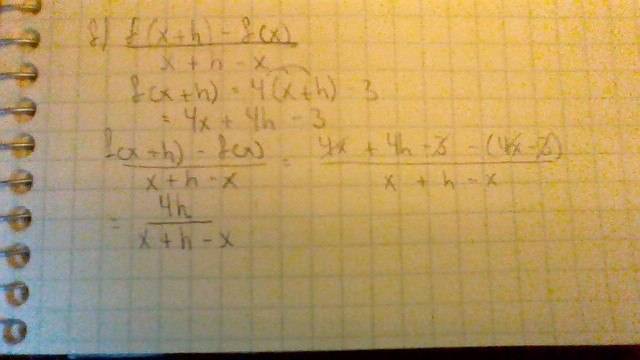 f) f(x+h) - f(x) / x + h - x
f(x+h) = 4(x+h) - 3
= 4x + 4h - 3
f(x+h) - f(x) / x + h - x = 4x + 4h - 3 - (4x - 3) / x + h - x
= 4h / x + h - x